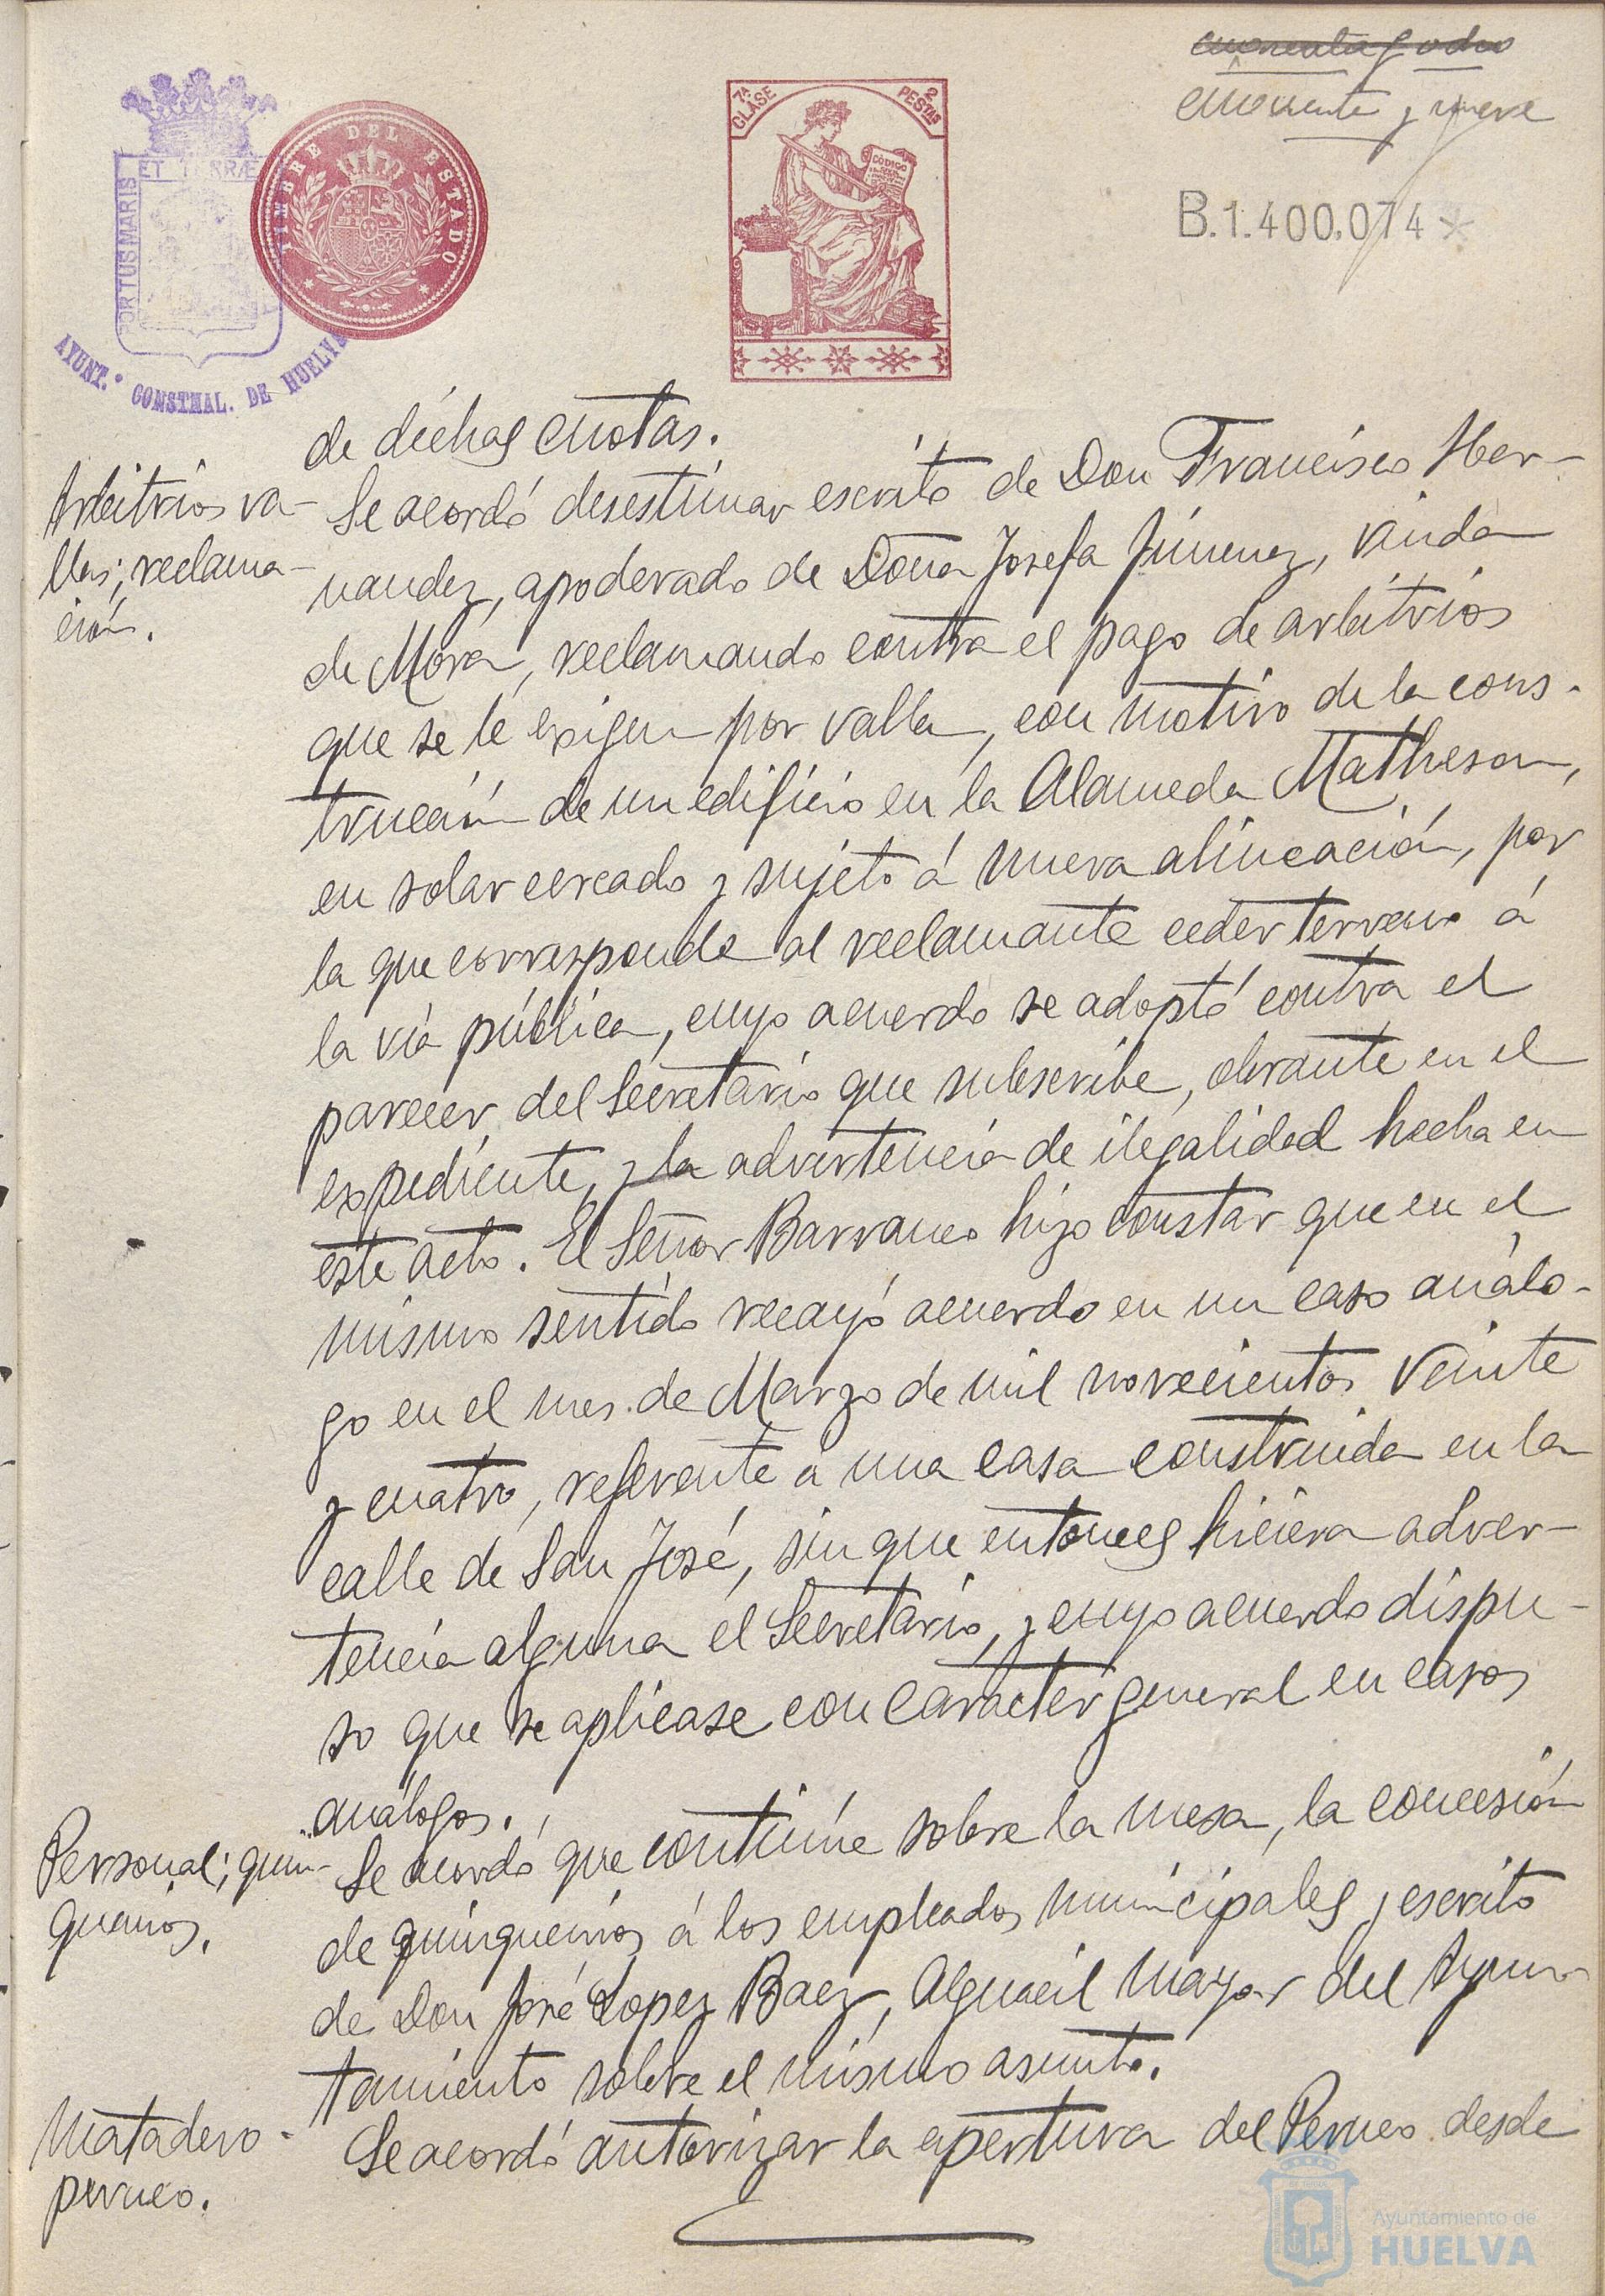 cuarenta y ocho
cuarenta y nueve
7ª CLASE
2 PESTAS
CÓDIGO
TIMBRE DEL ESTADO
ET TERRÆ
PORTUS MARIS
AYUNT.º CONSTNAL. DE HUELVA
B.1.400.074*
de dichas cuotas.
Arbitrios va-
llas; reclama-
ción.
Se acordó desestimar escrito de Don Francisco Her-
nandez, apoderado de Doña Josefa Jimenez, viuda
de Mora, reclamando contra el pago de arbitrios
que se le exigen por valla, con motivo de la cons-
trucción de un edificio en la Alameda Matheson,
en solar cercado y sujeto á nueva alineación, por
la que corresponde al reclamante ceder terreno á
la via pública, cuyo acuerdo se adoptó contra el
parecer del Secretario que subscribe, obrante en el
expediente, y la advertencia de ilegalidad hecha en
este acto. El Señor Barranco hizo constar que en el
mismo sentido recayó acuerdo en un caso análo-
go en el mes de Marzo de mil novecientos veinte
y cuatro, referente a una casa construida en la
calle de San José, sin que entonces hiciera adver-
tencia alguna el Secretario, y cuyo acuerdo dispu-
so que se aplicase con carácter general en casos
análogos.
Personal; quin-
quenios.
Se acordó que continúe sobre la mesa, la concesión
de quinquenios á los empleados municipales y escrito
de Don José Lopez Baez, Alguacil mayor del Ayun-
tamiento sobre el mismo asunto.
Matadero-
perneo.
Se acordó autorizar la apertura del Perneo desde
Ayuntamiento de
HUELVA